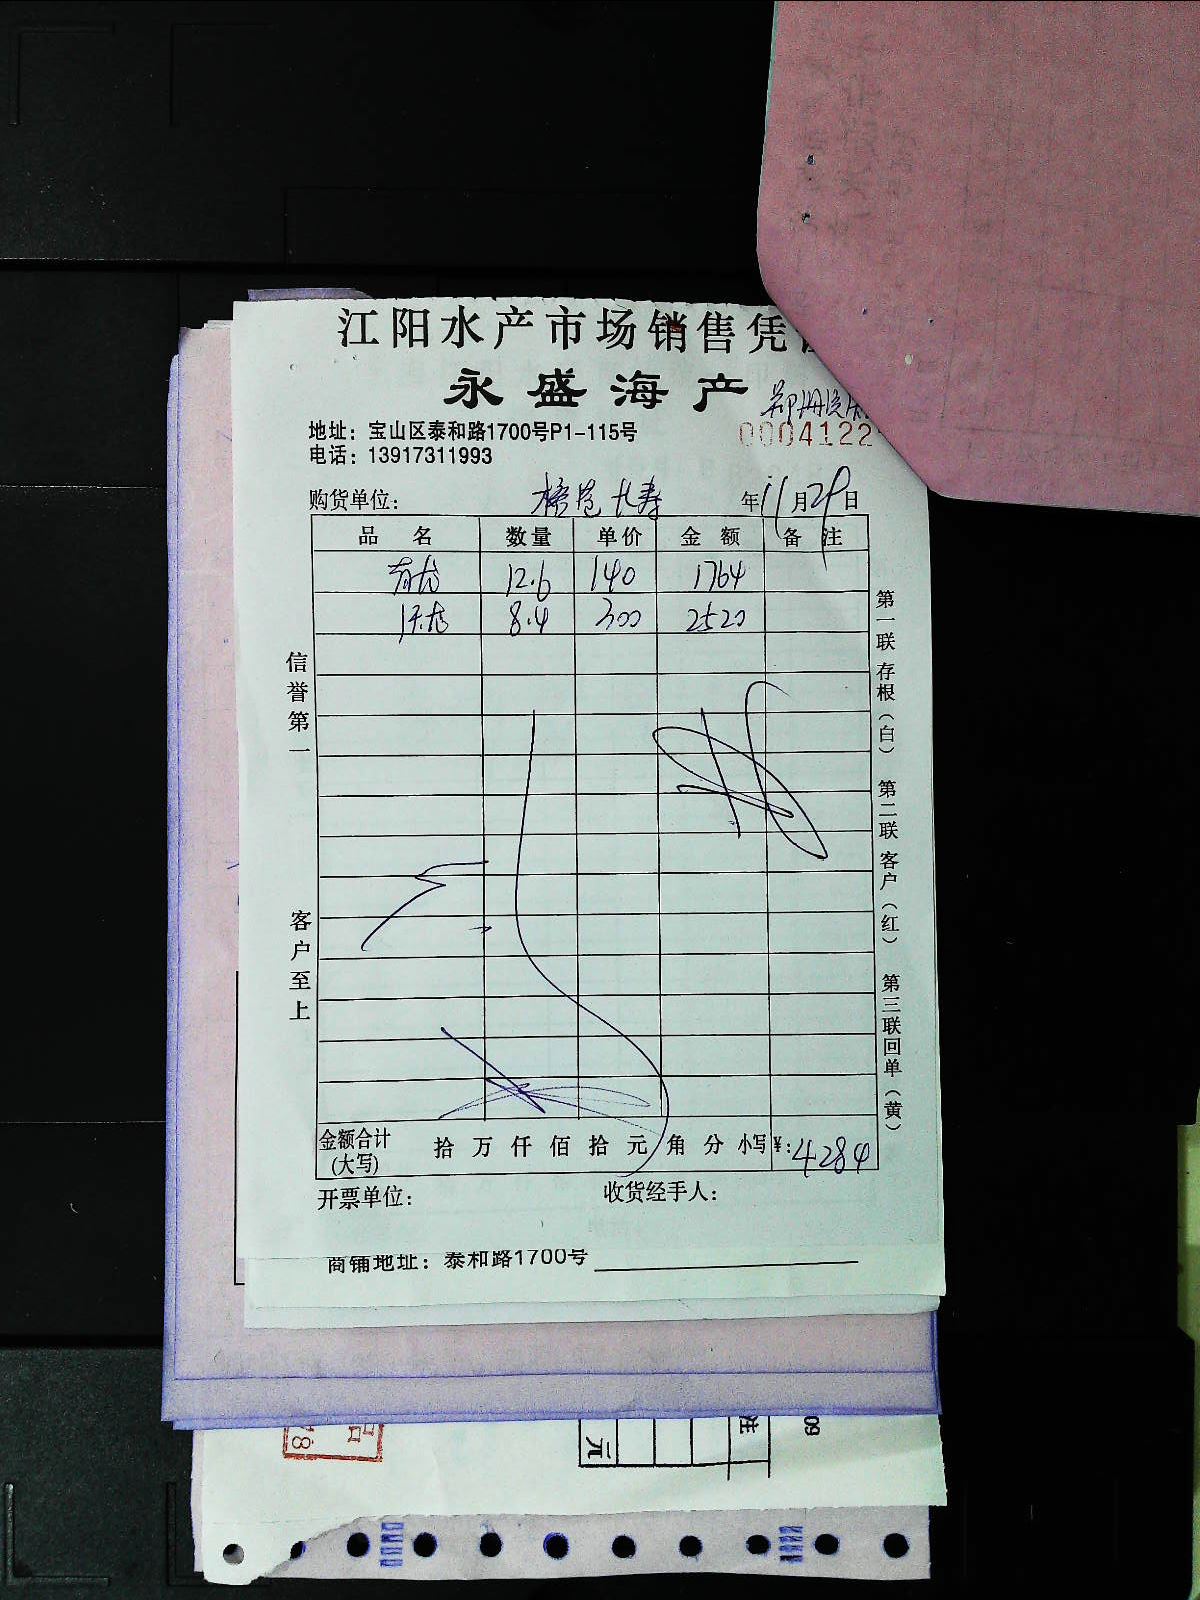 江阳水产市场销售凭
永盛海产
地址：宝山区泰和路1700号P1-115号
0004122
电话：13917311993
购货单位： 长寿 年11月29日
品名 数量 单价 金额 备注
青龙 12.6 140 1764
8.4 300 2520
信誉第一
客户至上
第一联存根（白）
第二联客户（红）
第三联回单（黄）
金额合计（大写） 拾万仟佰拾元角分 小写¥：4284
开票单位： 收货经手人：
商铺地址：泰和路1700号
元
注
09